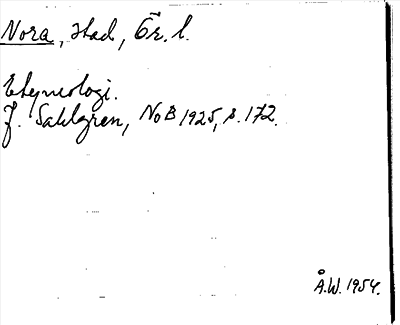 Nora, stad, Ör. l.
Etymologi.
J. Sahlgren, NoB 1925, s. 172.
Å.W. 1954.